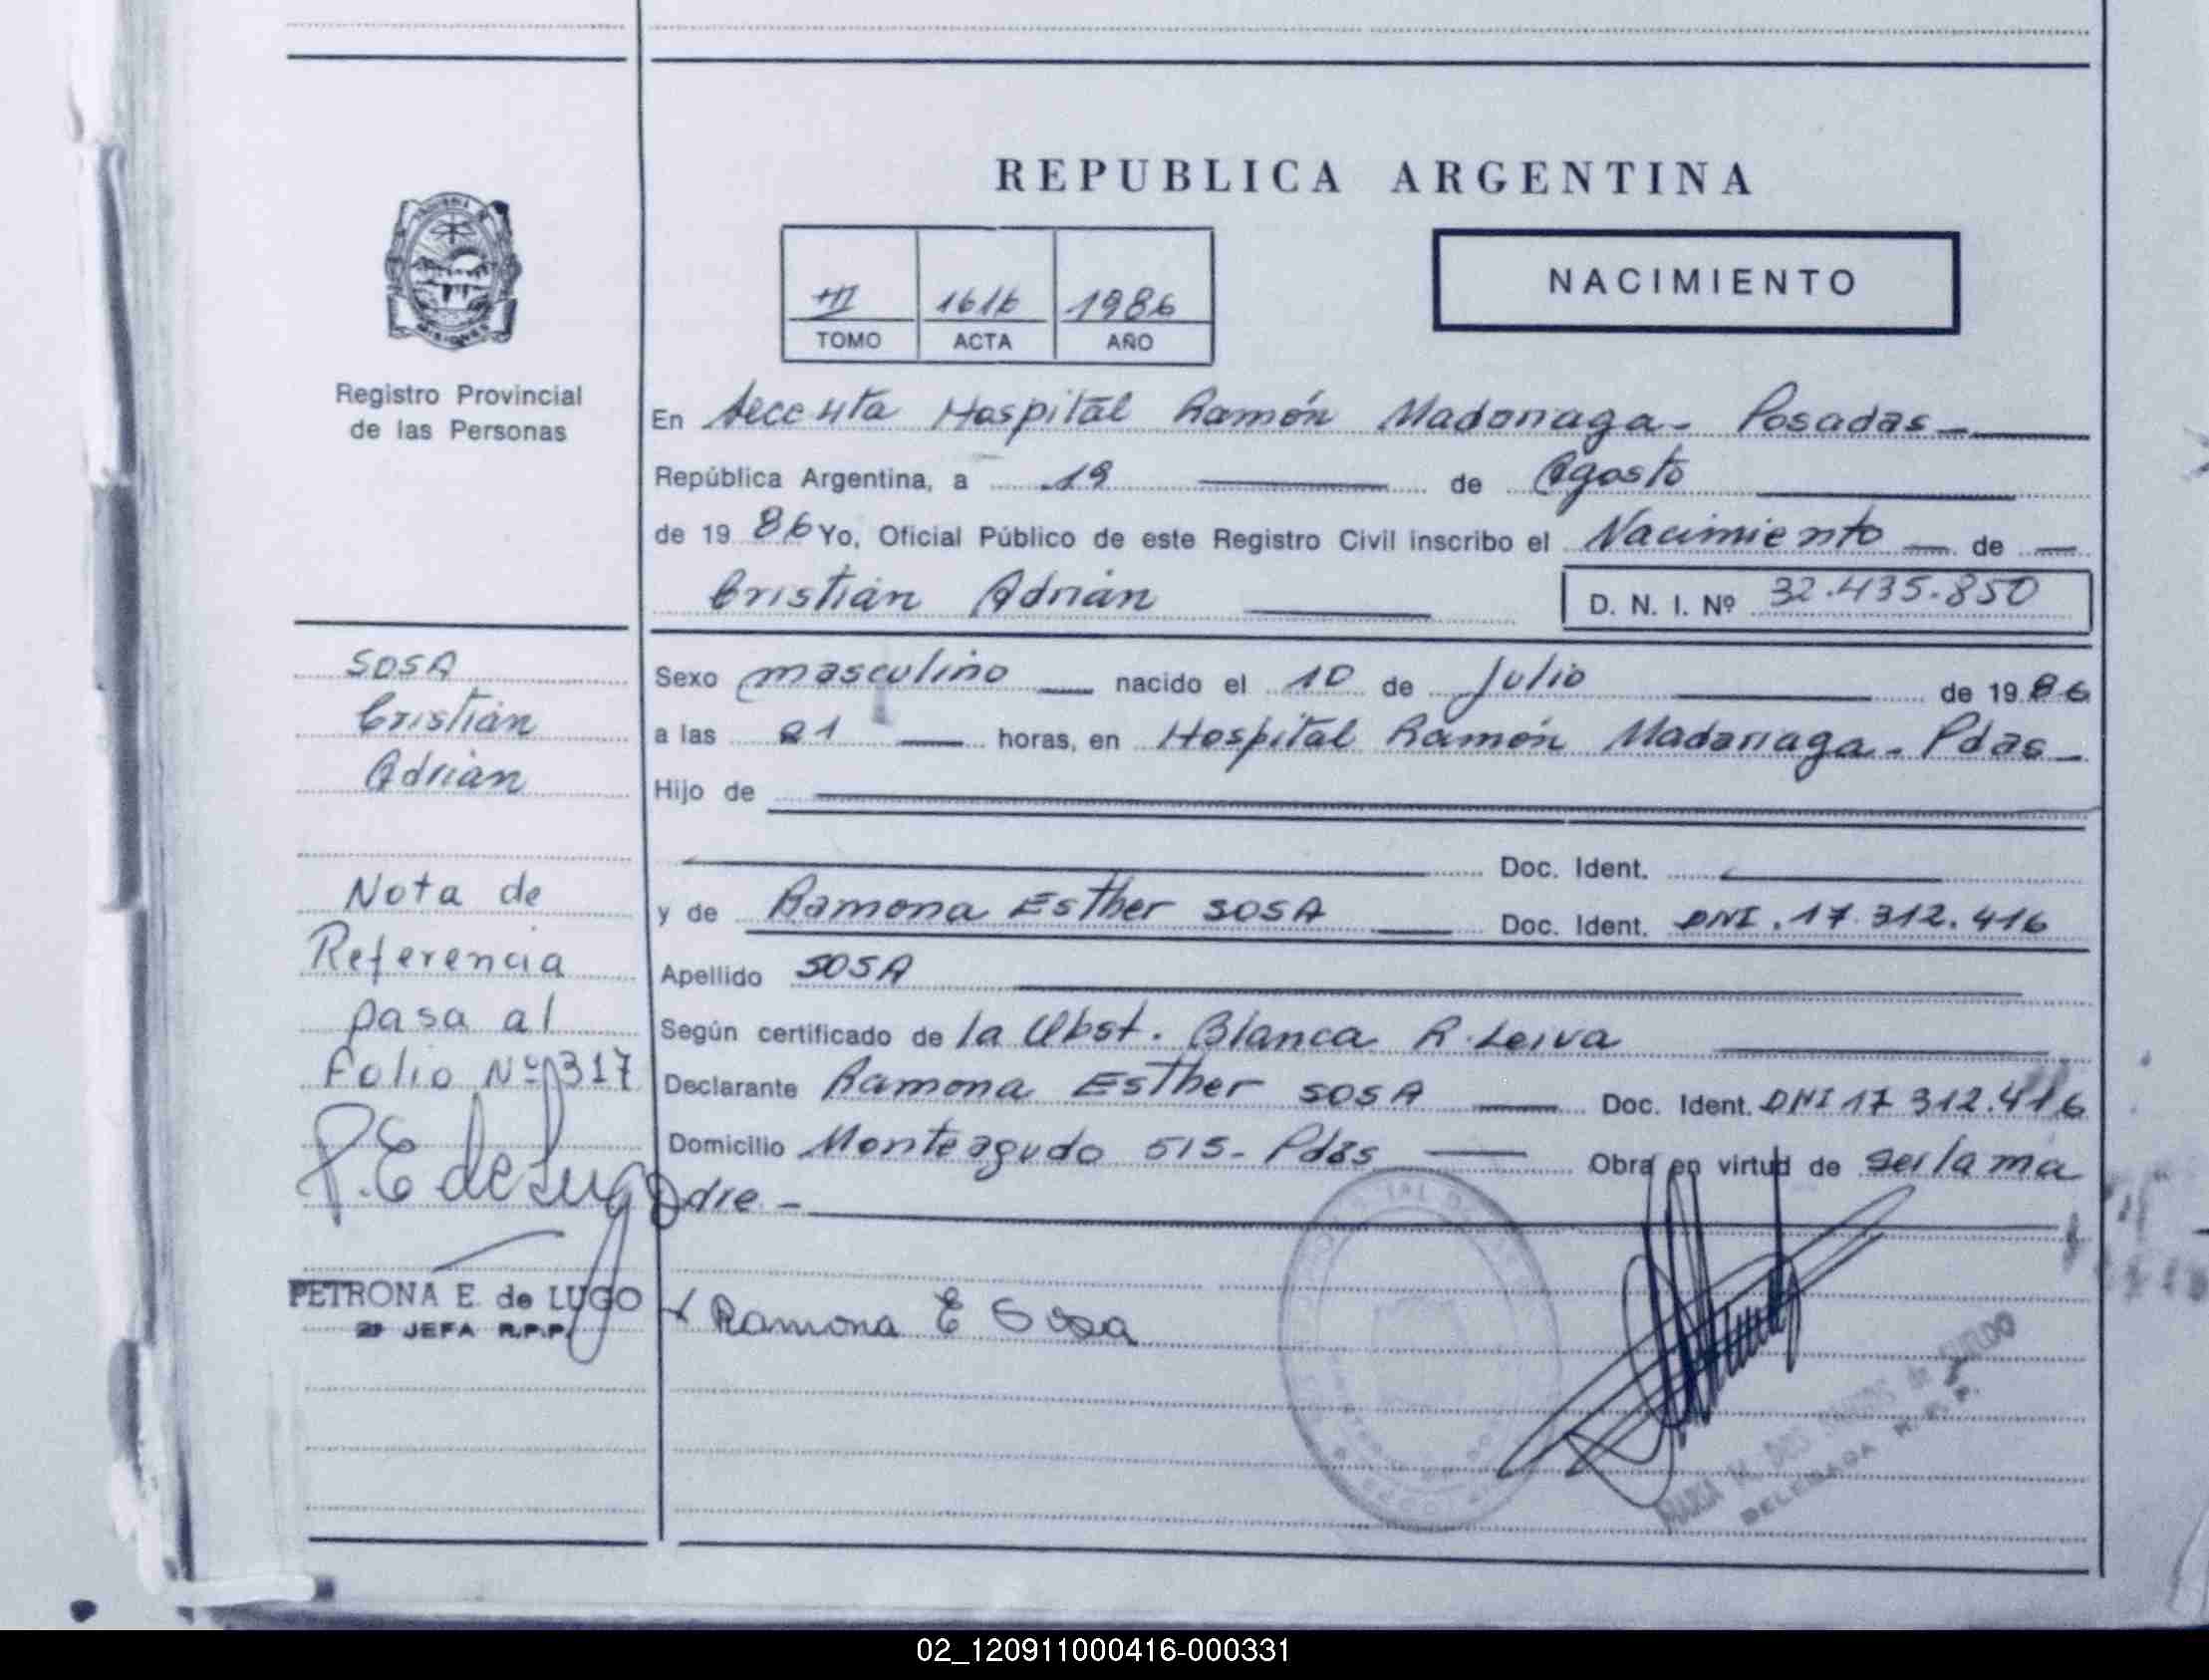 REPUBLICA ARGENTINA
NACIMIENTO
II 1616 1986
TOMO ACTA AÑO
Registro Provincial
de las Personas
En Secc 4ta Hospital Ramón Madariaga - Posadas -
República Argentina, a 19 de Agosto
de 1986 Yo, Oficial Público de este Registro Civil inscribo el Nacimiento de
Cristián Adrián
D. N. I. Nº 32.435.850
SOSA
Cristián
Adrián
Sexo masculino nacido el 10 de Julio de 1986
a las 21 horas, en Hospital Ramón Madariaga - Pdas -
Hijo de
Doc. Ident.
y de Ramona Esther SOSA Doc. Ident. DNI. 17.312.416
Apellido SOSA
Según certificado de la Obst. Blanca R. Leiva
Declarante Ramona Esther SOSA Doc. Ident. DNI 17 312.416
Domicilio Monteagudo 515 - Pdas Obra en virtud de ser la ma
dre. -
Nota de
Referencia
pasa al
Folio Nº 317
P. E de Lugo
PETRONA E. de LUGO
JEFA R.P.P.
Ramona E Sosa
MARIA M. DOS SANTOS de
DELEGADA R. P. P.
02_120911000416-000331